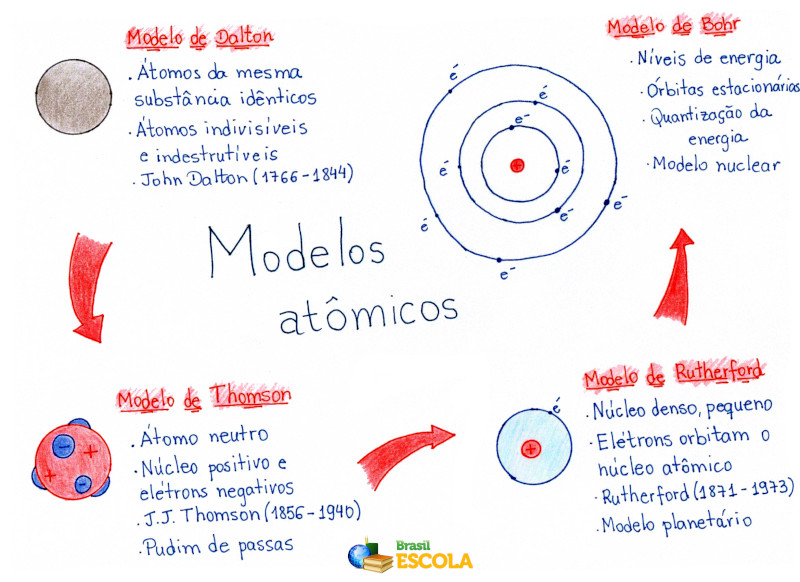 Modelo de Dalton
· Átomos da mesma
substância idênticos
· Átomos indivisíveis
e indestrutíveis
· John Dalton (1766-1844)
Modelos
atômicos
Modelo de Thomson
· Átomo neutro
· Núcleo positivo e
elétrons negativos
· J.J. Thomson (1856-1940)
· Pudim de passas
+
+
-
-
Modelo de Rutherford
· Núcleo denso, pequeno
· Elétrons orbitam o
núcleo atômico
· Rutherford (1871-1973)
· Modelo planetário
e-
+
Modelo de Bohr
· Níveis de energia
· Órbitas estacionárias
· Quantização da
energia
· Modelo nuclear
e-
e-
e-
e-
e-
+
e-
e-
e-
e-
Brasil
ESCOLA